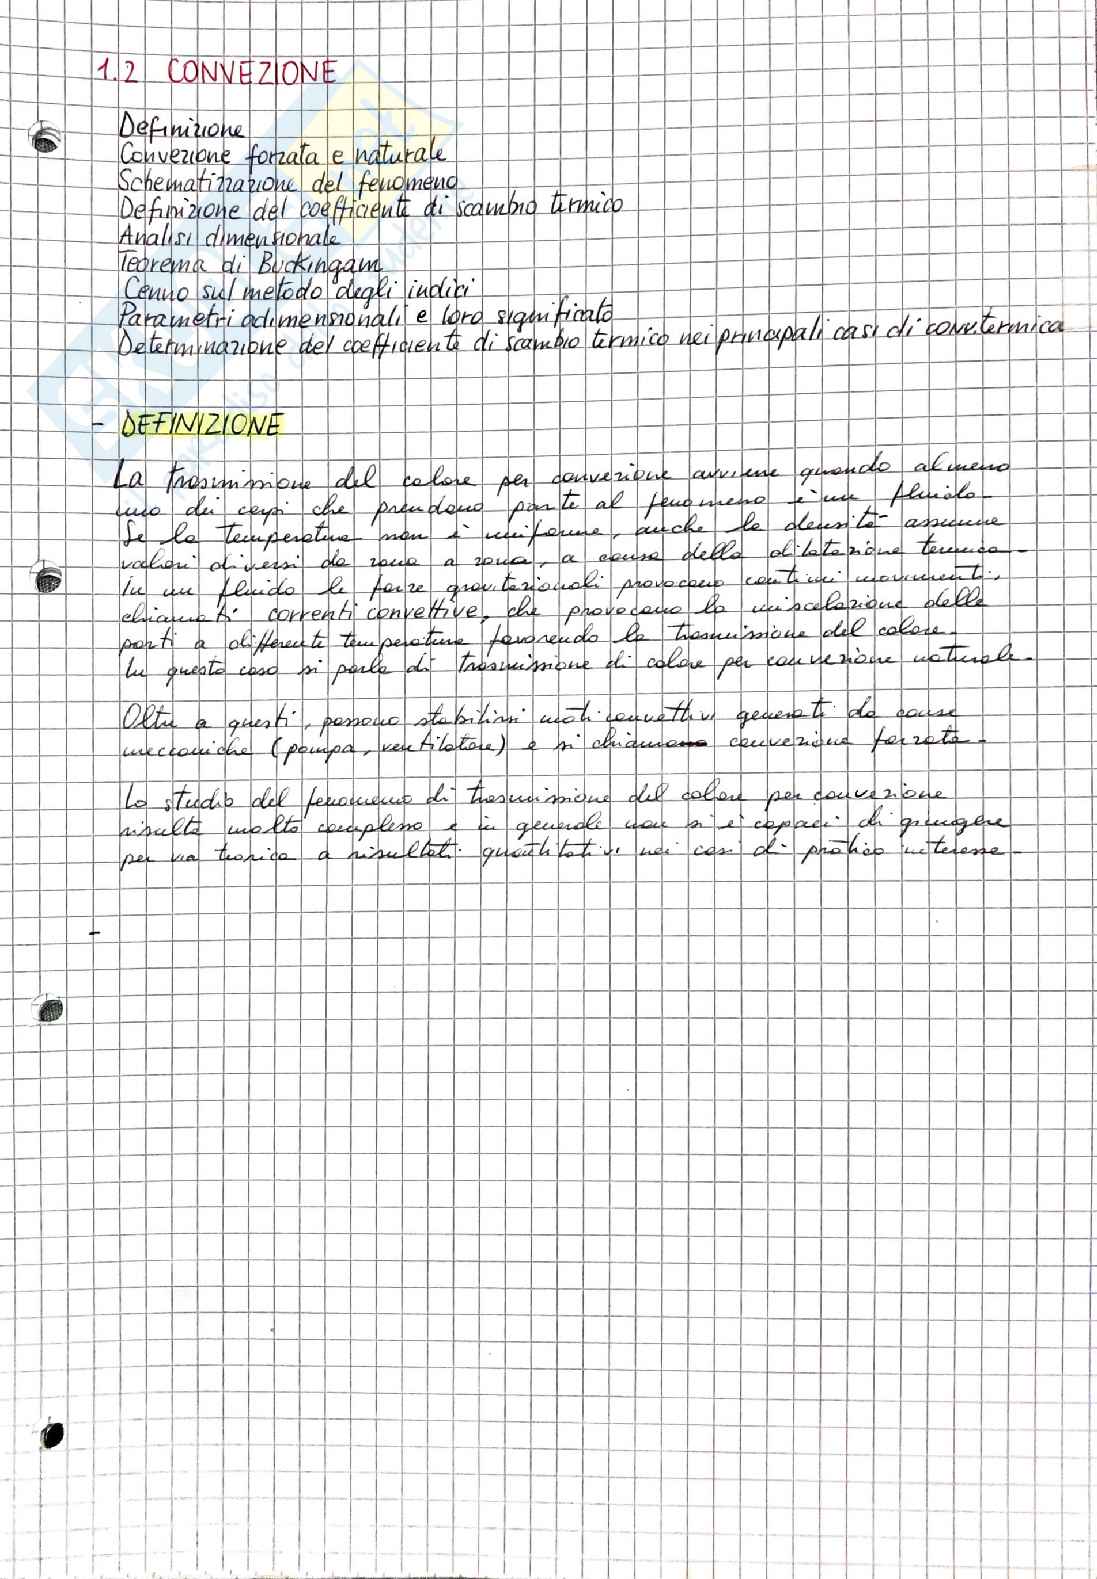 1.2 CONVEZIONE
Definizione
Convezione forzata e naturale
Schematizzazione del fenomeno
Definizione del coefficiente di scambio termico
Analisi dimensionale
Teorema di Buckingam
Cenno sul metodo degli indici
Parametri adimensionali e loro significato
Determinazione del coefficiente di scambio termico nei principali casi di conv. termica
- DEFINIZIONE
La trasmissione del calore per convezione avviene quando almeno
uno dei corpi che prendono parte al fenomeno è un fluido.
Se la temperatura non è uniforme, anche la densità assume
valori diversi da zona a zona, a causa della dilatazione termica.
In un fluido le forze gravitazionali provocano continui movimenti,
chiamati correnti convettive, che provocano la miscelazione delle
parti a differente temperatura favorendo la trasmissione del calore.
In questo caso si parla di trasmissione di calore per convezione naturale.
Oltre a questi, possono stabilirsi moti convettivi generati da cause
meccaniche (pompa, ventilatore) e si chiama convezione forzata.
Lo studio del fenomeno di trasmissione del calore per convezione
risulta molto complesso e in generale non si è capaci di giungere
per via teorica a risultati quantitativi nei casi di pratico interesse.
-